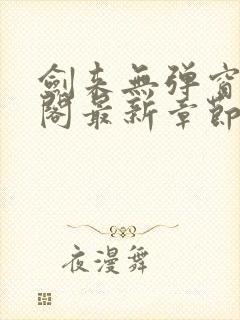 劍来無弹窗
閣最新章節
夜漫舞